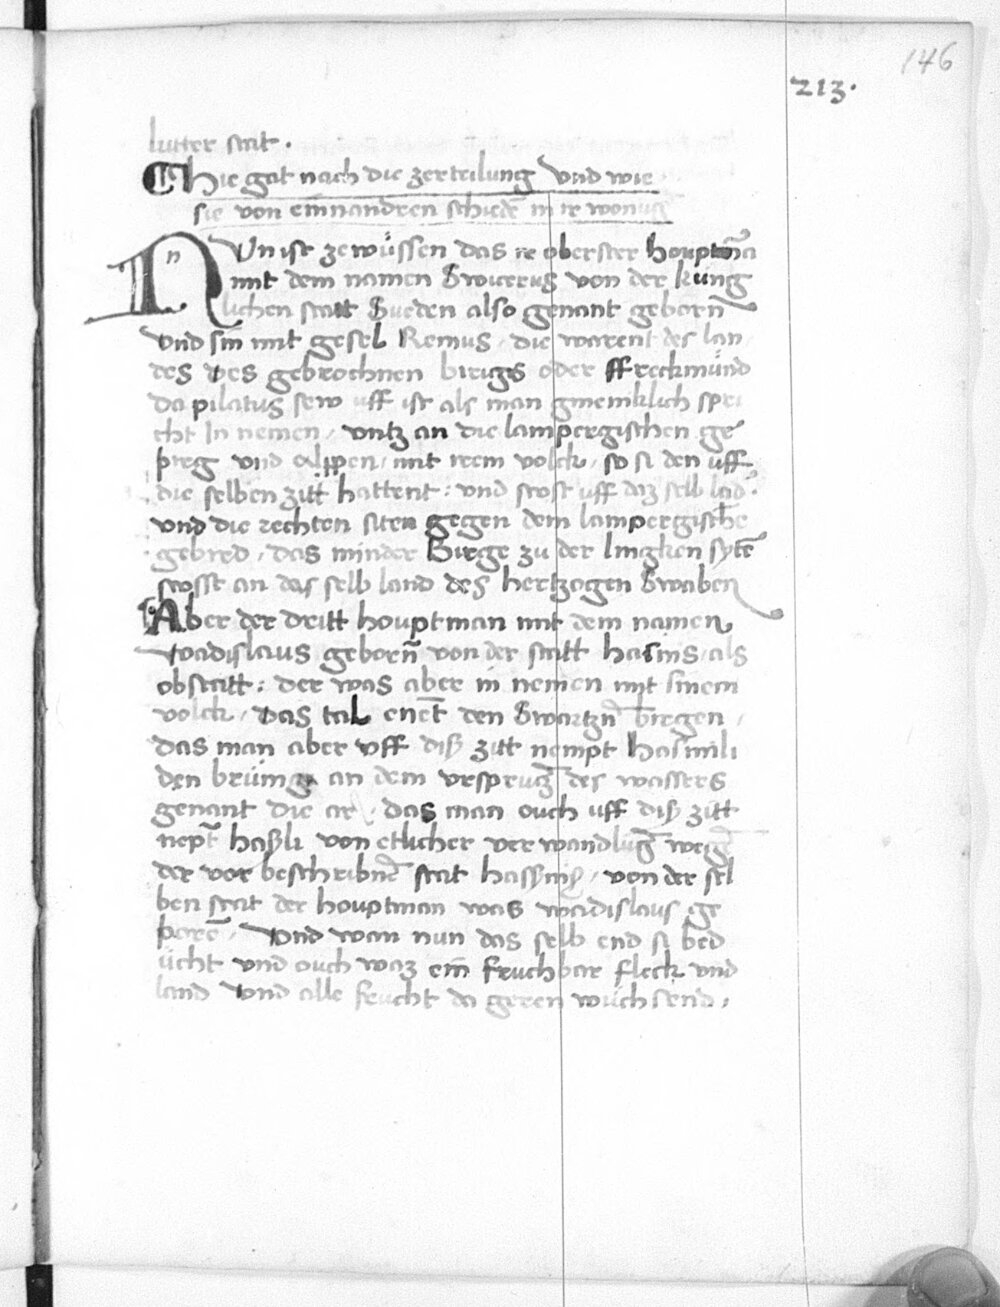 146
213.
lutter stat.
Hie gat nach die zerteilung vnd wie
sie von einnandren schiedē in ir wonūg
NUn ist ze wüssen das ir oberster houptmā
mit dem namen Switerus von der küng
lichen statt Sueden also genant geborn̄
vnd sin mit gesel Remus, die warent des lan
des des gebrochnen birgs oder ffreckmünd
da pilatus sew uff ist als man gmeinklich spri
cht In nemen, vntz an die lampergischen ge
pirg vnd alppen, mit irem volck, so si den uff
die selben zitt hattent: vnd stost uff daz selb lād.
vnd die rechten siten gegen dem lampergischē
gebred, das minder Birge zu der lingken sytē
stosst an das selb land des hertzogen Swaben
Aber der dritt houptman mit dem namen
wadislaus geborn̄ von der statt hasnis, als
obstatt: der was aber in nemen mit sinem
volck, das tal enēt den Swartzn̄ birgen,
das man aber vff diß zitt nempt
den brünig an dem vrsprūg des wassers
genant die ar, das man ouch uff diß zitt
nept haßli von etlicher verwandlūg wegē
der vor beschribnē stat hassnis, von der sel
ben stat der houptman was wadislaus ge
porē, vnd wan nun das selb end si bed
ücht vnd ouch waz ein fruchbar fleck vnd
land vnd alle frucht da geren wüchsend,